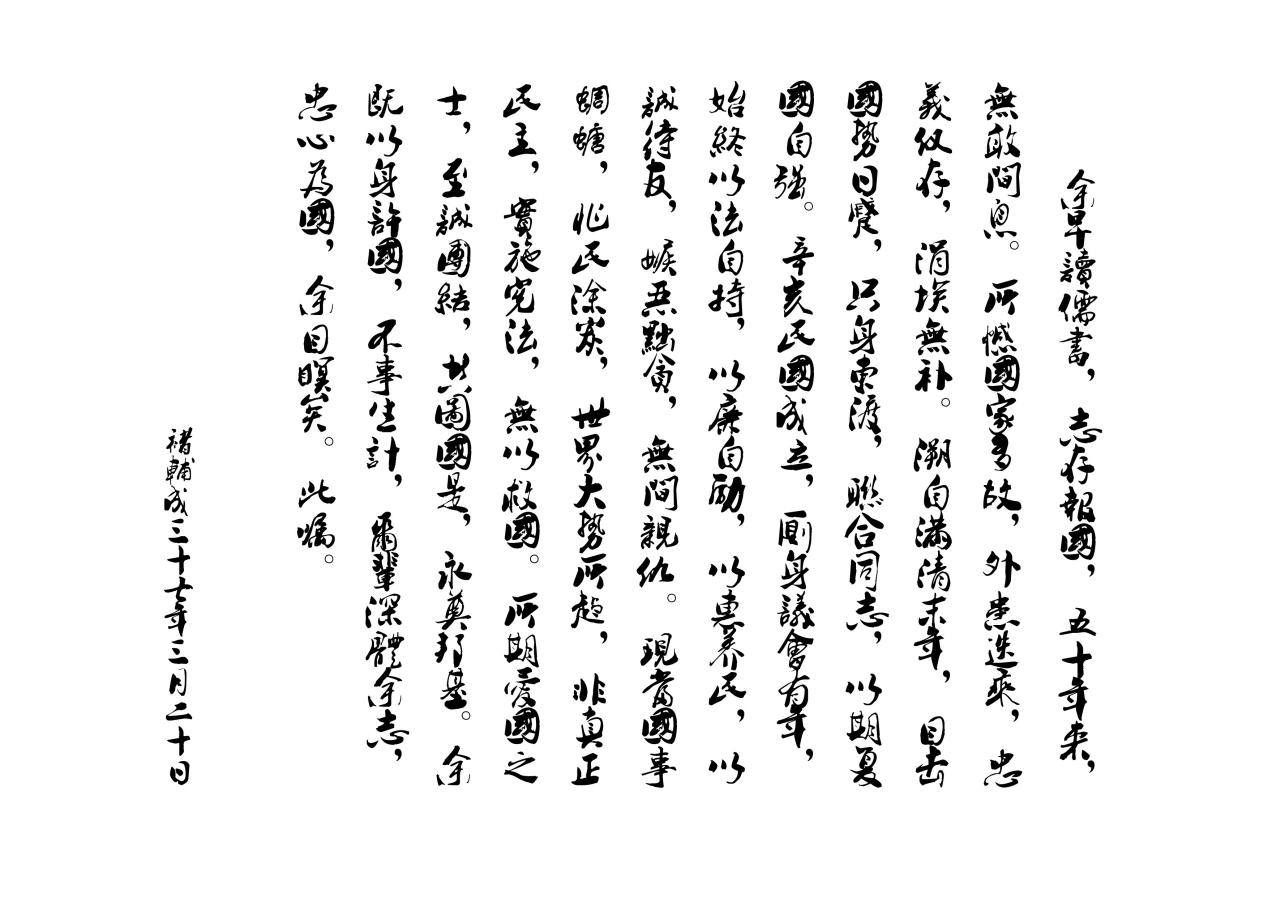 余早讀儒書，志存報國，五十年來，
無敢間息。所憾國家多故，外患迭乘，忠
義仅存，涓埃無补。溯自满清末年，目击
國勢日蹙，只身東渡，聯合同志，以期夏
國自强。辛亥民國成立，厠身議會有年，
始終以法自持，以廉自勵，以惠养民，以
誠待友，嫉恶黜貪，無間親仇。現當國事
蜩螗，兆民涂炭，世界大势所趋，非真正
民主，實施宪法，無以救國。所期愛國之
士，至誠團結，共圖國是，永奠邦基。余
既以身許國，不事生計，爾輩深體余志，
忠心為國，余目瞑矣。此嘱。
褚輔成三十七年三月二十日